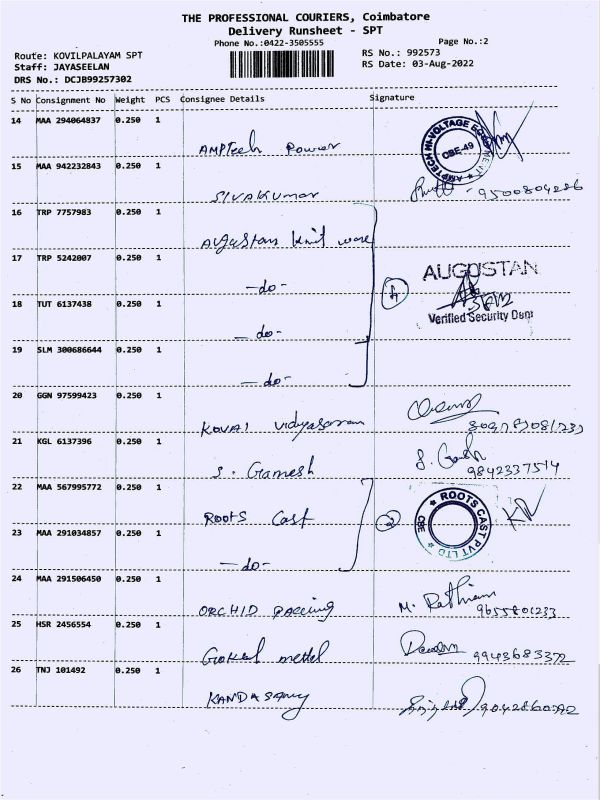 THE PROFESSIONAL COURIERS, Coimbatore
Delivery Runsheet - SPT
Phone No.:0422-3505555 Page No.:2
Route: KOVILPALAYAM SPT RS No.: 992573
Staff: JAYASEELAN RS Date: 03-Aug-2022
DRS No.: DCJB99257302
S No Consignment No Weight PCS Consignee Details Signature
14 MAA 294064837 0.250 1
AMPTech Power
AMPTECH HI-VOLTAGE EQUIPMENT CBE-49
15 MAA 942232843 0.250 1
SIVAKUMAR 9500804286
16 TRP 7757983 0.250 1
Augustan Knit ware
17 TRP 5242007 0.250 1
-do- 4 AUGUSTAN
18 TUT 6137438 0.250 1
-do- Verified Security Dept
19 SLM 300686644 0.250 1
-do-
20 GGN 97599423 0.250 1
KOVAI Vidyasaram
21 KGL 6137396 0.250 1
S. Ganesh 9842337514
22 MAA 567995772 0.250 1
ROOTS Cast 2 ROOTS CAST PVT LTD CBE
23 MAA 291034857 0.250 1
-do-
24 MAA 291506450 0.250 1
ORCHID Packing M. Rathinam 9655801233
25 HSR 2456554 0.250 1
Gokul metal 9943683372
26 TNJ 101492 0.250 1
KANDASAMY